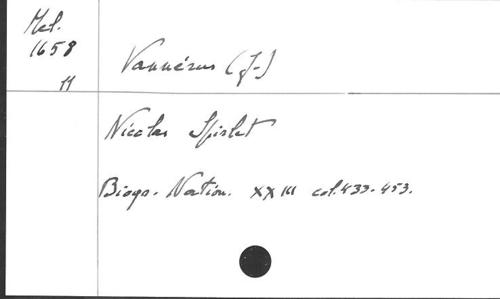 Mel.
1658
11
Vannérus (J-)
Nicolas Spirlet
Biogr. Nation. XXIII col. 433-453.